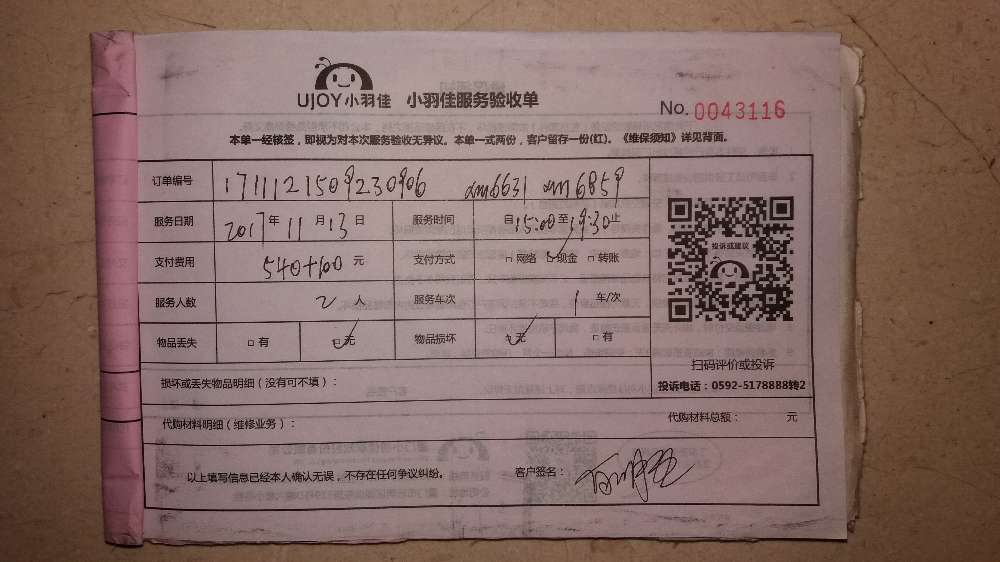 UJOY小羽佳 小羽佳服务验收单
No. 0043116
本单一经核签，即视为对本次服务验收无异议。本单一式两份，客户留存一份(红)。《维保须知》详见背面。
订单编号 1711121509230906 xm6631 xm6859
服务日期 2017年 11月 13日 服务时间 自15:00至19:30止
支付费用 540+100 元 支付方式 □网络 ☑现金 □转账
投诉或建议
服务人数 2 人 服务车次 1 车/次
物品丢失 □有 ☑无 物品损坏 ☑无 □有
扫码评价或投诉
损坏或丢失物品明细（没有可不填）： 投诉电话：0592-5178888转2
代购材料明细（维修业务）： 代购材料总额： 元
以上填写信息已经本人确认无误，不存在任何争议纠纷。 客户签名：